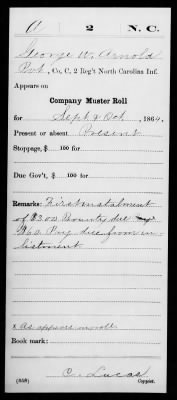 A 2 N. C.
George W. Arnold
Pvt, Co. C, 2 Reg't North Carolina Inf.
Appears on
Company Muster Roll
for Sept & Oct, 1864.
Present or absent Present
Stoppage, $ 100 for
Due Gov't, $ 100 for
Remarks: First instalment
of $300 Bounty due
$60. Pay due from en
listment
x As appears on roll
Book mark:
C. Lucas
(858) Copyist.